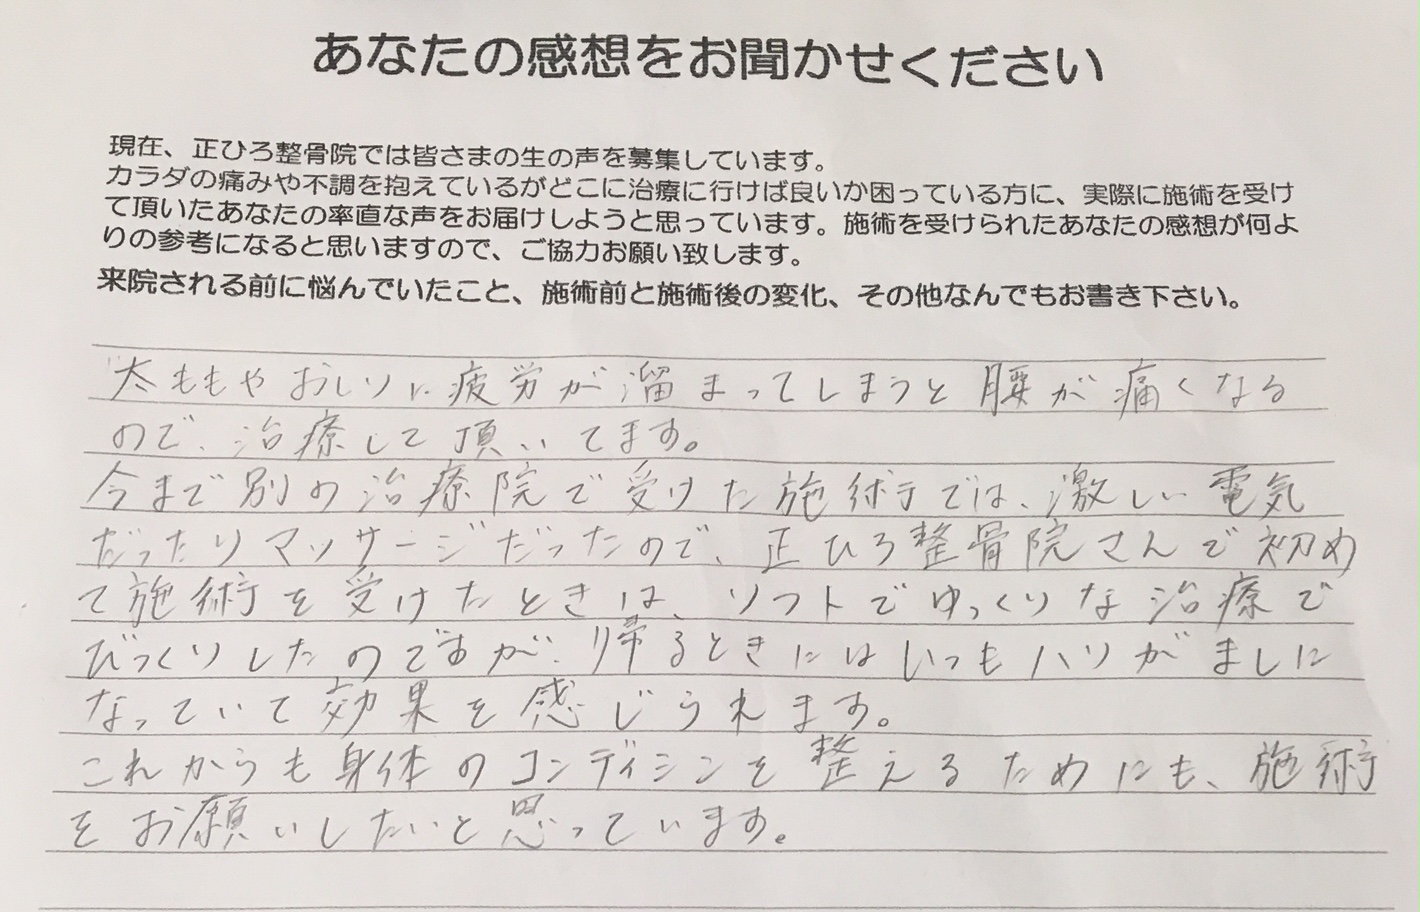 あなたの感想をお聞かせください
現在、正ひろ整骨院では皆さまの生の声を募集しています。
カラダの痛みや不調を抱えているがどこに治療に行けば良いか困っている方に、実際に施術を受け
て頂いたあなたの率直な声をお届けしようと思っています。施術を受けられたあなたの感想が何よ
りの参考になると思いますので、ご協力お願い致します。
来院される前に悩んでいたこと、施術前と施術後の変化、その他なんでもお書き下さい。
太ももやおしりに疲労が溜まってしまうと腰が痛くなる
ので、治療して頂いてます。
今まで別の治療院で受けた施術では、激しい電気
だったりマッサージだったので、正ひろ整骨院さんで初め
て施術を受けたときは、ソフトでゆっくりな治療で
びっくりしたのですが、帰るときにはいつもハリがましに
なっていて効果を感じられます。
これからも身体のコンディシンを整えるためにも、施術
をお願いしたいと思っています。